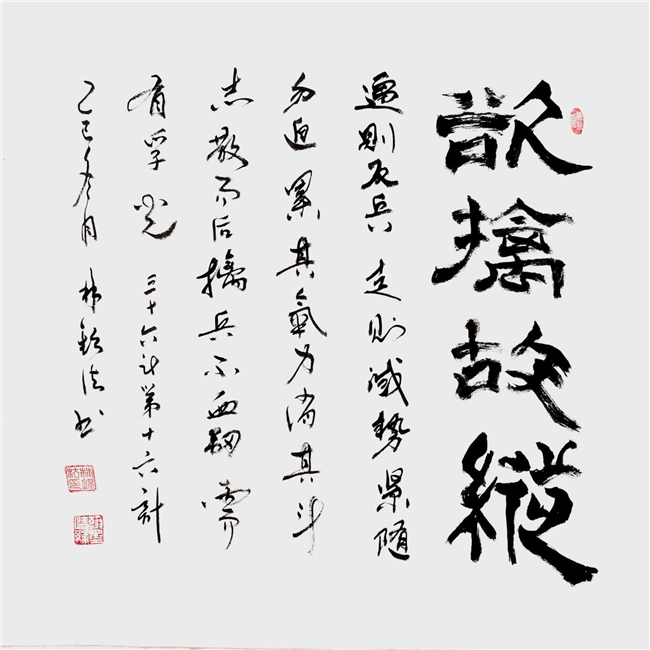 欲擒故縱
逼則反兵 走則減勢 緊随
勿迫 累其氣力 消其斗
志 散而后擒 兵不血 需
有孚光 三十六计第十六計
乙巳冬月 林 书